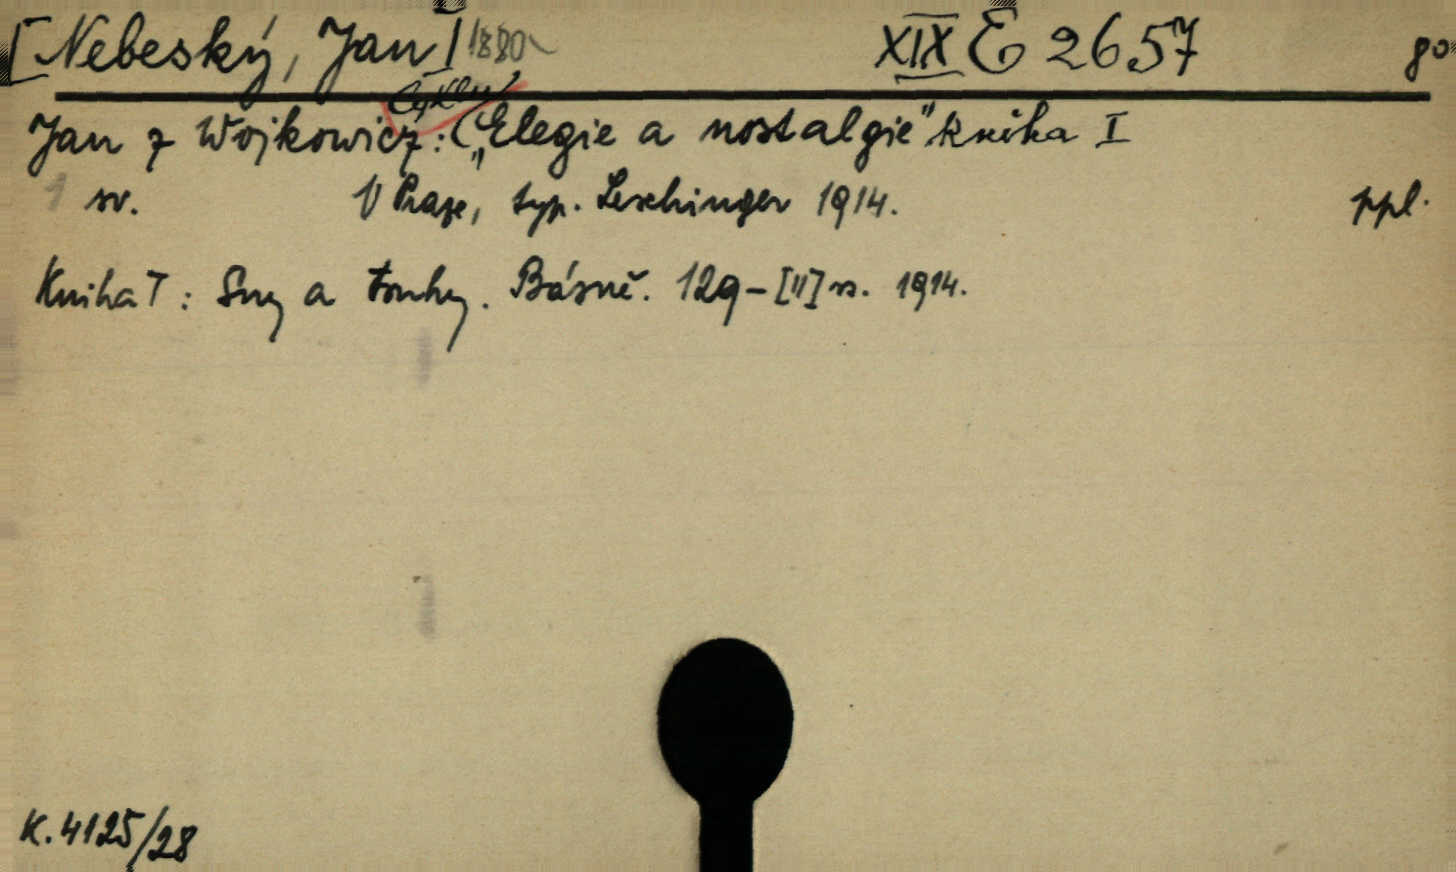 [Nebeský, Jan] 1880- XIX E 2657 8°
Cyklu
Jan z Wojkowicz: („Elegie a nostalgie" kniha I
1 sv. V Praze, typ. Leschinger 1914. ppl.
Kniha I: Sny a touhy. Básně. 129-[II] s. 1914.
K. 4125/28